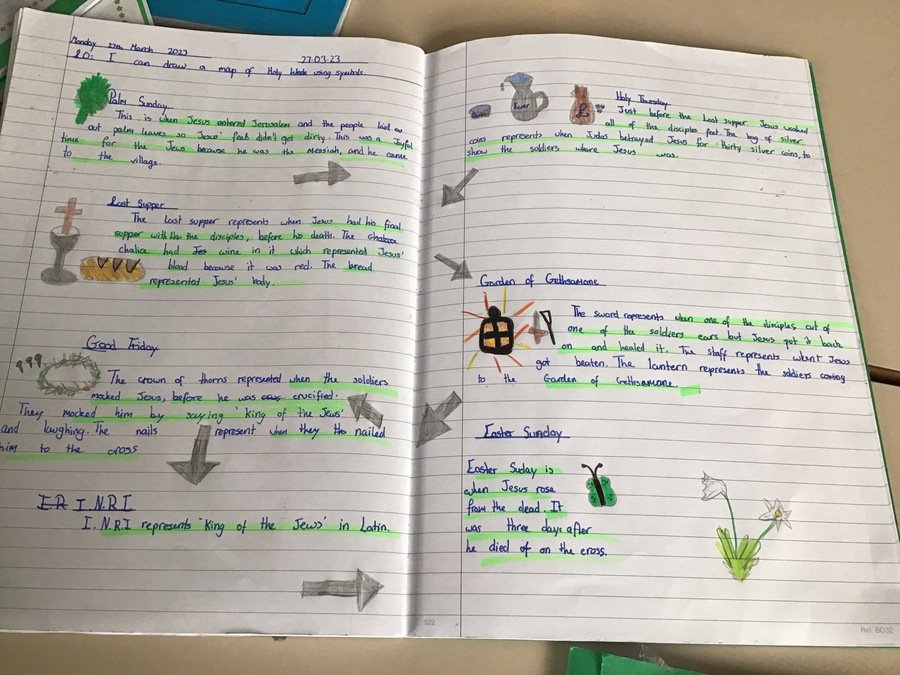 Monday 27th March 2023
27.03.23
LO: I can draw a map of Holy Week using symbols.
Palm Sunday
This is when Jesus entered Jerusalem and the people laid
out palm leaves so Jesus' feet didn't get dirty. This was a Joyful
time for the Jews because he was the Messiah, and he came
to the village.
Last Supper
The last supper represents when Jesus had his final
supper with the disciples, before his death. The
chalice had wine in it which represented Jesus'
blood because it was red. The bread
represented Jesus' body.
Good Friday
The crown of thorns represented when the soldiers
mocked Jesus, before he was crucified.
They mocked him by saying 'king of the Jews'
and laughing. The nails represent when they nailed
him to the cross
I.R I.N.R.I
I.N.R.I represents 'king of the Jews' in Latin.
322
Ewer
Holy Thursday
Just before the Last supper Jesus washed
all of the disciples feet. The bag of silver
coins represents when Judas betrayed Jesus for thirty silver coins, to
show the soldiers where Jesus was.
Garden of Gethsamane
The sword represents when one of the disciples cut of
one of the soldiers ears but Jesus put it back
on and healed it. The staff represents when Jesus
got beaten. The lantern represents the soldiers coming
to the Garden of Gethsamane.
Easter Sunday
Easter Suday is
when Jesus rose
from the dead. It
was three days after
he died of on the cross.